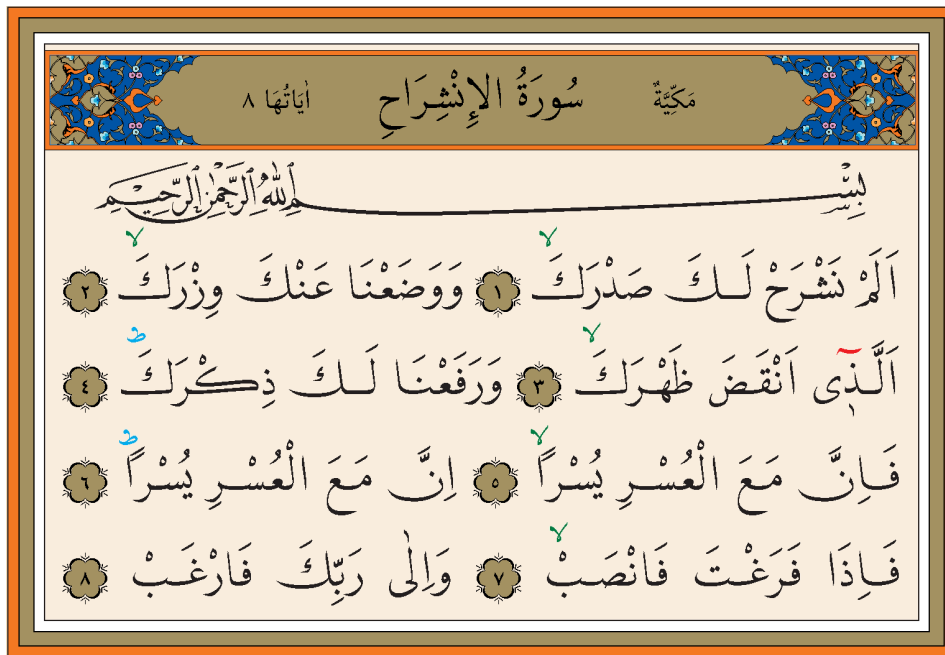 مَكِّيَّةٌ سُورَةُ الإِنْشِرَاحِ اٰيَاتُهَا ٨
بِسْمِ اللهِ الرَّحْمٰنِ الرَّحِيمِ
اَلَمْ نَشْرَحْ لَكَ صَدْرَكَۙ ١ وَوَضَعْنَا عَنْكَ وِزْرَكَۙ ٢
اَلَّذ۪ٓى اَنْقَضَ ظَهْرَكَۙ ٣ وَرَفَعْنَا لَكَ ذِكْرَكَۜ ٤
فَاِنَّ مَعَ الْعُسْرِ يُسْرًاۙ ٥ اِنَّ مَعَ الْعُسْرِ يُسْرًاۜ ٦
فَاِذَا فَرَغْتَ فَانْصَبْۙ ٧ وَاِلٰى رَبِّكَ فَارْغَبْ ٨